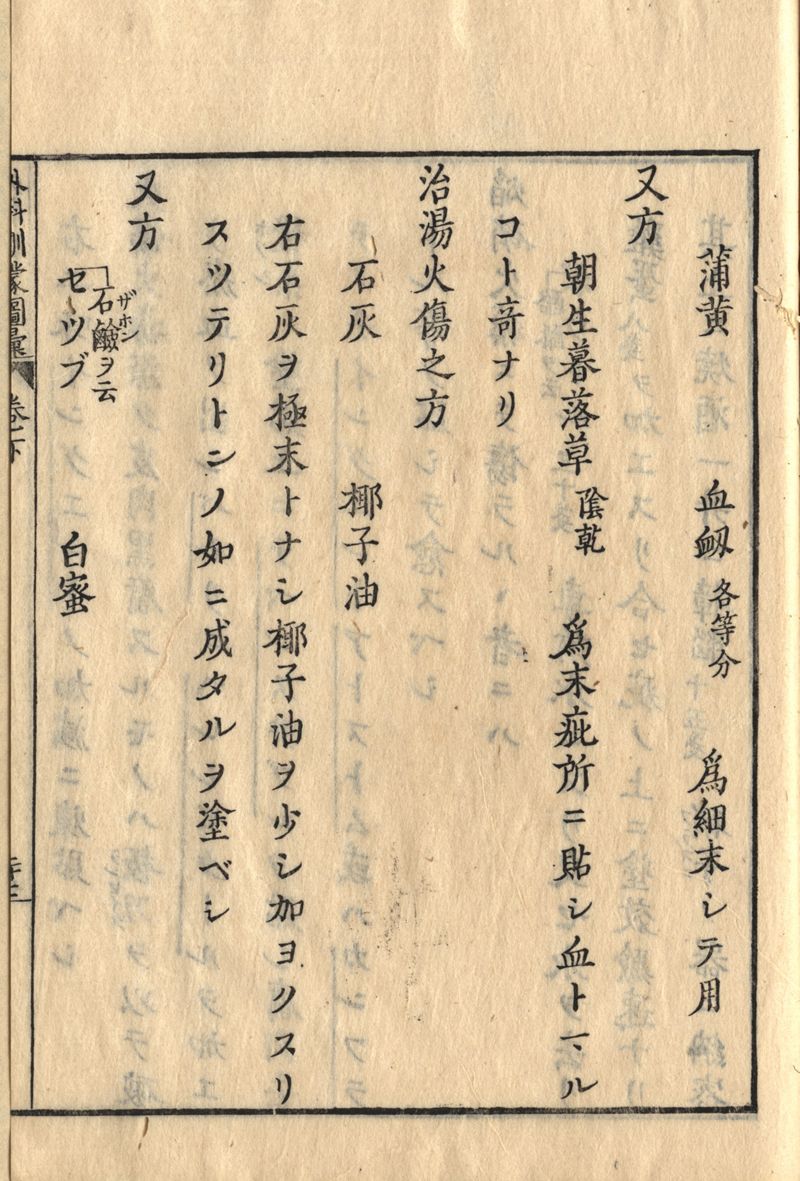 蒲黄 血衂 各等分 爲細末シテ用
又方
朝生暮落草 陰乾 爲末疵所ニ貼シ血ト一ヽル
コト竒ナリ
治湯火傷之方
石灰 椰子油
右石灰ヲ極末トナシ椰子油ヲ少シ加ヨクスリ
スツテリトンノ如ニ成タルヲ塗ベシ
又方
石鹸ヲ云
ザホン
セツブ 白蜜
外科訓蒙圖彙 卷之下